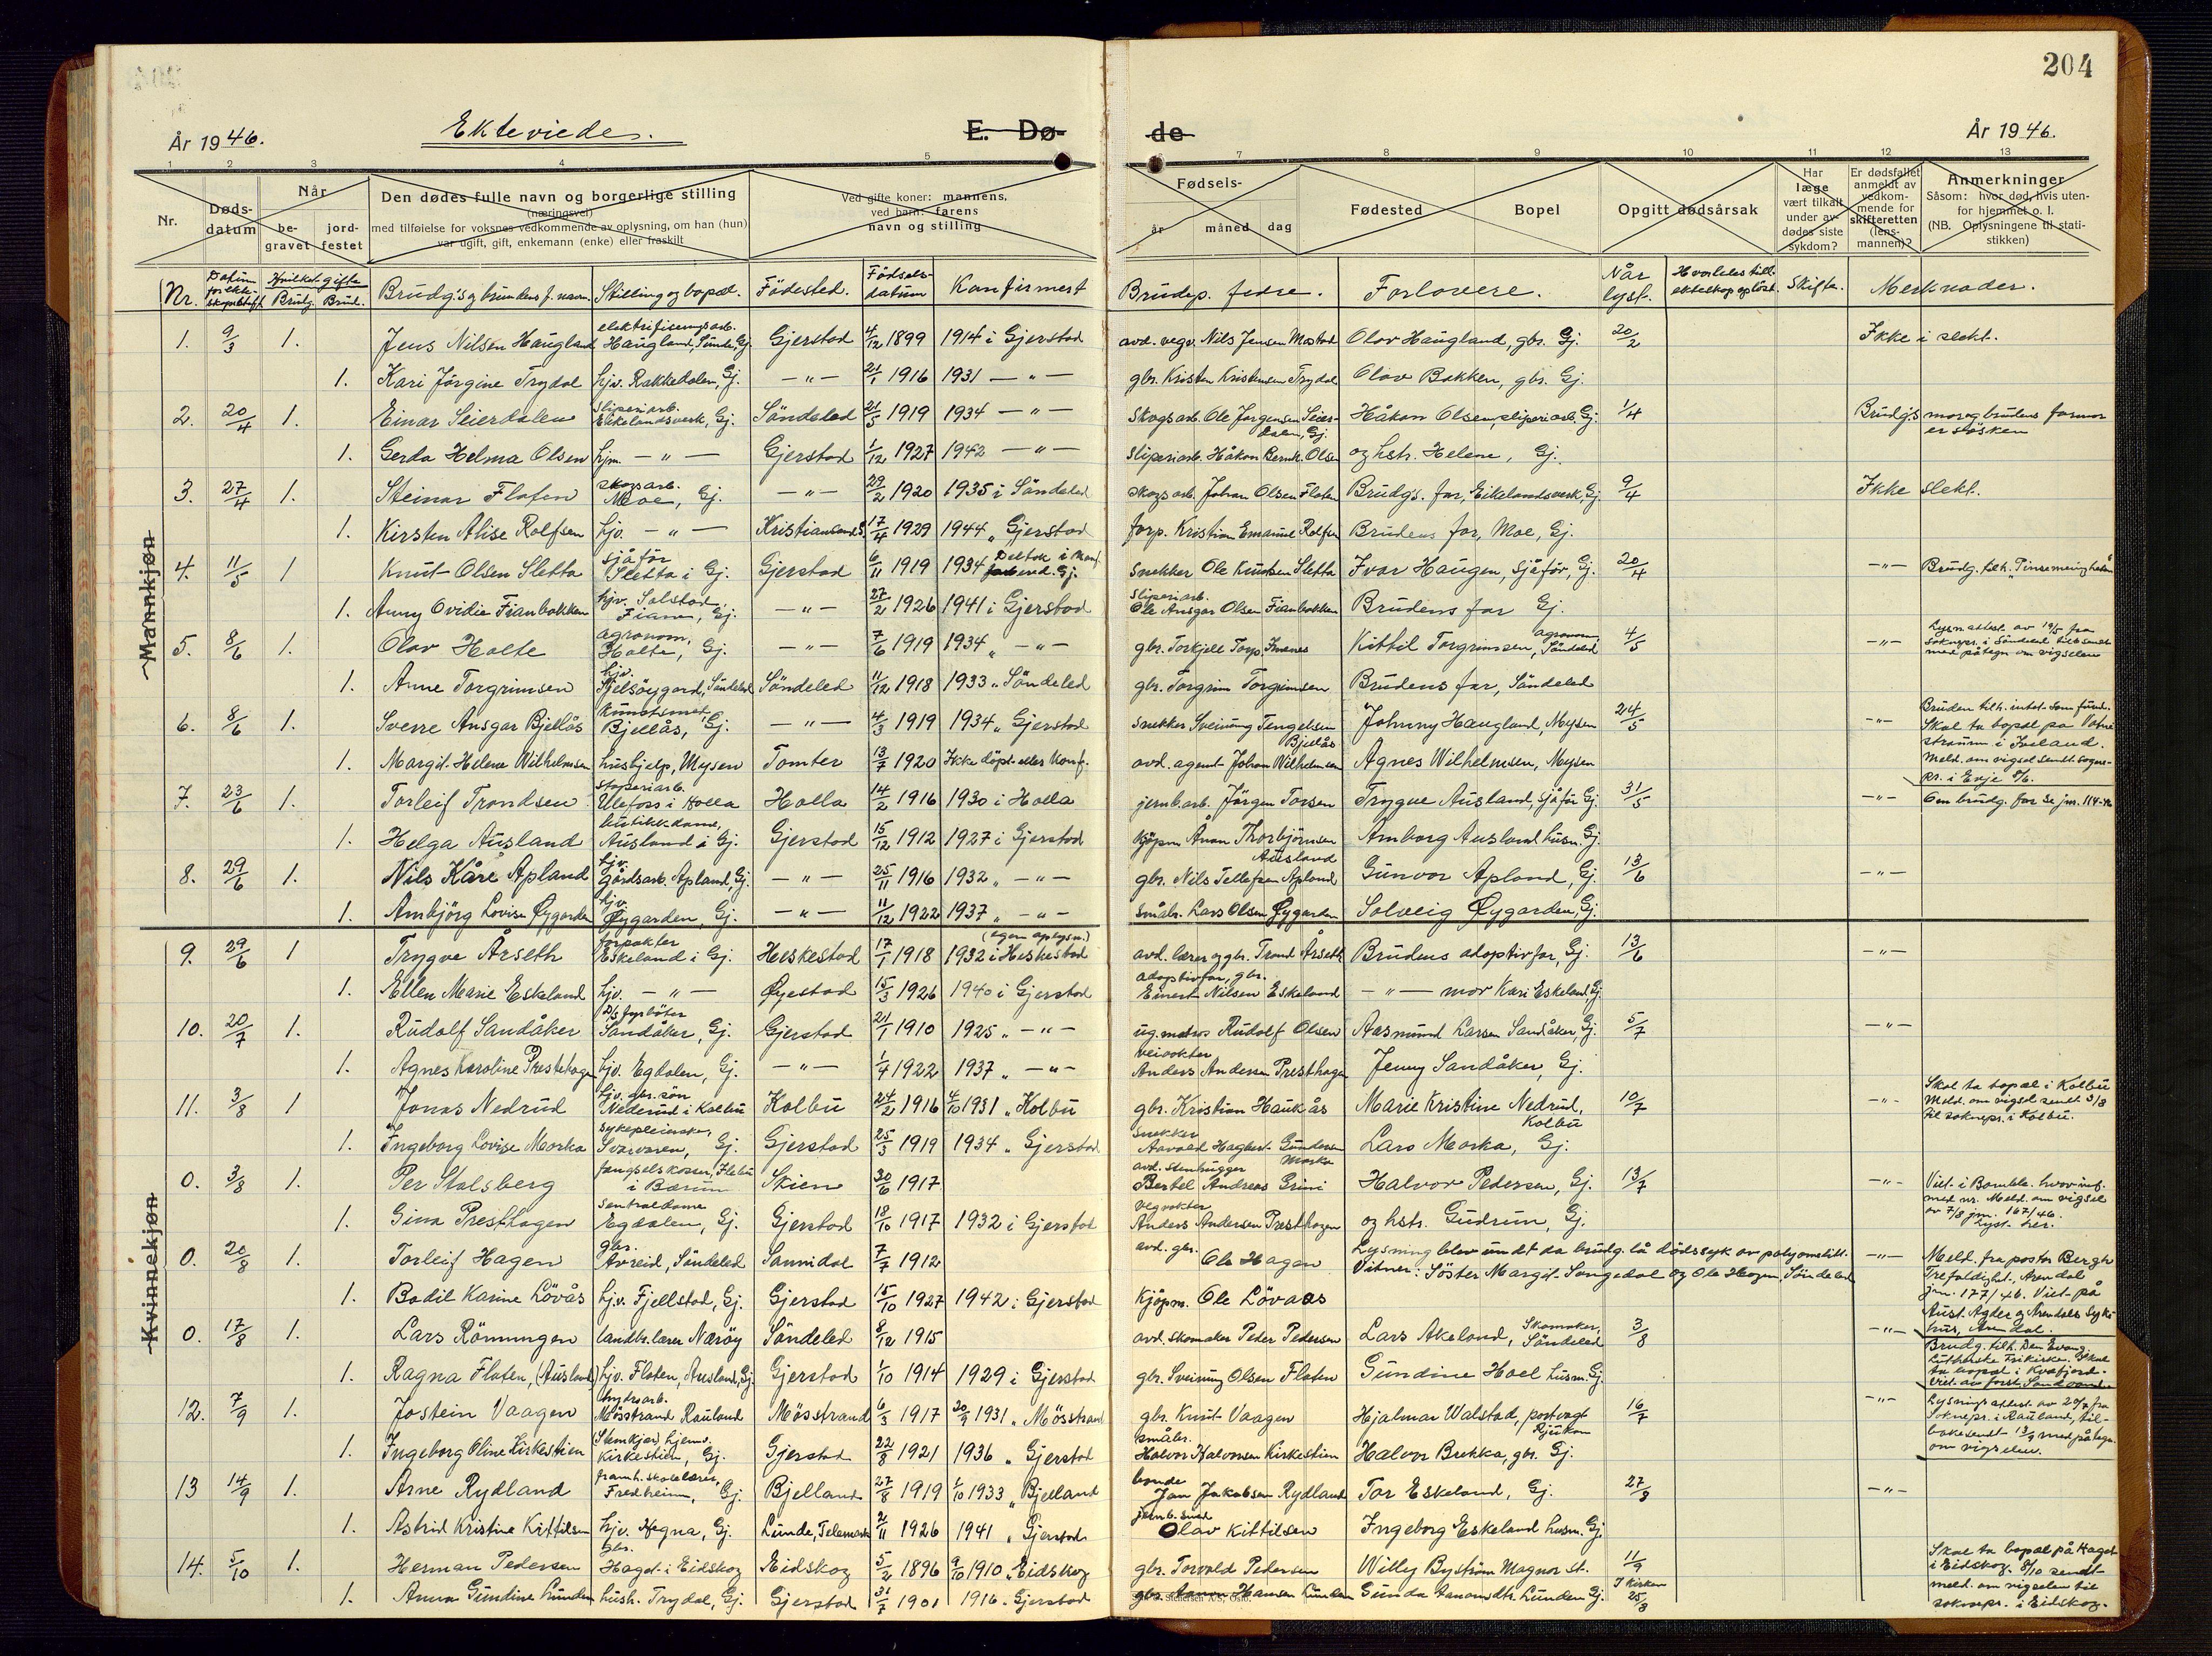 204
År 1946.
Ekteviede.
E. Dø-
de
År 1946.
1 2 3 4 5 7 8 9 10 11 12 13
Nr.
Døds-
datum
Når
be-
gravet
jord-
festet
Den dødes fulle navn og borgerlige stilling
(næringsvei)
med tilføielse for voksnes vedkommende av oplysning, om han (hun)
var ugift, gift, enkemann (enke) eller fraskilt
Ved gifte koner: mannens,
ved barn: farens
navn og stilling
Fødsels-
år måned dag
Fødested
Bopel
Opgitt dødsårsak
Har
læge
vært tilkalt
under av-
dødes siste
sykdom?
Er dødsfallet
anmeldt av
vedkom-
mende for
skifteretten
(lens-
mannen)?
Anmerkninger
Såsom: hvor død, hvis uten-
for hjemmet o. l.
(NB. Oplysningene til stati-
stikken)
Nr. Hvilket gifte Brudg. Brud. Brudg's og brudens f. navn. Stilling og bopæl. Födested. Födsels-datum Konfirmert Brudep. fedre. Forlovere. Når lyst. Hvorledes ekteskap opløst. Skifte. Merknader.
1. 9/3 1. Jens Nilsen Haugland elektrifiseringsarb. Haugland, Sunde, Gj. Gjerstad 4/12 1899 1914 i Gjerstad avd. vegv. Nils Jensen Mostad Olav Haugland, gbr. Gj. 20/2 Ikke i slekt.
1. Kari Jörgine Trydal hjv. Rakkedalen, Gj. — " — 21/1 1916 1931 — " — gbr. Kristen Kristensen Trydal Olav Bakken, gbr. Gj.
2. 20/4 1. Einar Seierdalen sliperiarb. Eikelandsverk, Gj. Söndeled 21/5 1919 1934 — " — Skogsarb. Ole Jorgensen Seierdalen, Gj. Håkon Olsen, sliperiarb. Gj. 1/4 Brudg's mor og brudens farmor er søsken
1. Gerda Helma Olsen hjm. — " — Gjerstad 1/12 1927 1942 — " — sliperiarb. Håkon Bernh. Olsen og hstr. Helene, Gj.
3. 27/4 1. Steinar Flaten skogsarb. Moe, Gj. — " — 29/2 1920 1935 i Söndeled skogsarb. Johan Olsen Flaten Brudg's. far, Eikelandsverk, Gj. 9/4 Ikke slekt.
1. Kirsten Alise Rolfsen hjv. — " — Kristiansand S. 17/4 1929 1944 " Gjerstad forp. Kristian Emanuel Rolfsen Brudens far, Moe, Gj.
4. 11/5 1 Knut Olsen Sletta sjåför Sletta i Gj. Gjerstad 6/11 1919 1934 Deltok i konf. forbered. Gj. Snekker Ole Knutsen Sletta Ivar Haugen, Sjåför, Gj. 20/4 — " — Brudg. tilh. "Pinsemenigheten
1. Anny Ovidie Fianbakken hjv. Solstad, Fiane, Gj. — " — 27/2 1926 1941 i Gjerstad sliperiarb. Ole Ansgar Olsen Fianbakken Brudens far Gj.
5. 8/6 1. Olav Holte agronom, Holte, Gj. — " — 7/6 1919 1934 " — " — gbr. Torkjell Torp Imenes Kittil Torgrimsen, agronom, Söndeled 4/5 — " — Lysn. attest av 19/5 fra sokneps. i Söndeled tilbsendt med påtegn. om vigselen
1. Anne Torgrimsen hjv. Söndeled Söndeled 11/12 1918 1933 " Söndeled gbr. Torgrim Torgrimsen Brudens far, Söndeled
6. 8/6 1. Sverre Ansgar Bjellås Bjellås, Gj. — " — 4/3 1919 1934 " Gjerstad snekker Sveinung Tengelsen Bjellås Johnny Haugland, Mysen 24/5 — " — Skal ta bopel på Vatnestraum i Iveland. Meld. om vigsel sendt sognepr. i Evje
1. Margit Helene Wilhelmsen hushjelp, Mysen Tomter 13/7 1920 Ikke döpt eller konf. avd. agent Johan Wilhelmsen Agnes Wilhelmsen, Mysen
7. 23/6 1. Torleif Trondsen stoperiarb. Ulefoss i Holla Holla 14/2 1916 1930 i Holla jernb.arb. Jörgen Torsen Trygve Ausland, sjåför Gj. 31/5 — " — Om brudg. far se jnr. 114-46
1. Helga Ausland butikkdame, Ausland i Gj. Gjerstad 15/12 1912 1927 i Gjerstad Kjöpm. Ånon Thorbjörnsen Ausland Arnborg Ausland husm. Gj.
8. 29/6 1. Nils Kåre Apland hjv. Gårdsarb. Apland, Gj. — " — 25/11 1916 1932 " — " — gbr. Nils Tellefsen Apland Gunvor Apland, Gj. 13/6 — " —
1. Arnbjörg Lovise Øygarden hjv. Øygarden, Gj. — " — 11/12 1922 1937 " — " — småbr. Lars Olsen Øygarden Solveig Øygarden, Gj.
9. 29/6 1 Trygve Årseth forpakter Eskeland i Gj. Heskestad 17/1 1918 (egen oplysn.) 1932 i Heskestad avd. lærer og gbr. Trond Årseth Brudens adoptivfar, Gj. 13/6 — " —
1. Ellen Marie Eskeland hjv. — " — Øyestad 15/3 1926 1940 i Gjerstad adoptivfar, gbr. Einert Nilsen Eskeland — " — mor Kari Eskeland, Gj.
10. 20/7 1. Rudolf Sandåker D/S fyrböter Sandåker, Gj. Gjerstad 21/1 1910 1925 " — " — ug. matros Rudolf Olsen Aasmund Larsen Sandåker, Gj. 5/7 — " —
1. Agnes Karoline Presthagen hjv. Egdalen, Gj. — " — 1/4 1922 1937 " — " — veivokter Anders Andersen Presthagen Jenny Sandåker, Gj.
11. 3/8 1 Jonas Nedrud hjv. gbr. sön Nederud i Kolbu Kolbu 24/2 1916 4/10 1931 " Kolbu gbr. Kristian Haukås Marie Kristine Nedrud, Kolbu 10/7 — " — Skal ta bopel i Kolbu Meld. om vigsel sendt 3/8 til soknepr. i Kolbu.
1. Ingeborg Lovise Morka sykepleierske, Svarvaren, Gj. Gjerstad 25/3 1919 1934 " Gjerstad snekker Aavald Hagbert Gundersen Morka Lars Morka, Gj.
0. 3/8 1. Per Stalsberg i Bærum Skien 30/6 1917 avd. stenhugger Bertel Andreas Grini Halvor Pedersen, Gj. 13/7 — " — Viet i Bamble. Meld. om vigsel av 7/8 jnr. 167/46. Lyst her.
1. Gina Presthagen sentraldame Egdalen, Gj. Gjerstad 18/10 1917 1932 i Gjerstad Vegvokter Anders Andersen Presthagen og hstr. Gudrun, Gj.
0. 20/8 1. Torleif Hagen gbr. Avreid, Söndeled Sannidal 7/7 1912 avd. gbr. Ole Hagen Lysning blev undt da brudg. lå dödssyk av polyomelitt. Vitner: Söster Margit Songedal og Ole Hagen, Söndeled — " — Meld. fra pastor Bergh Trefoldighet, Arendal jnr. 177/46. Viet på Aust-Agder og Arendals Sykehus, Arendal.
1. Bodil Karine Lövås hjv. Fjellstad, Gj. Gjerstad 15/10 1927 1942 i Gjerstad Kjöpm. Ole Lövaas
0. 17/8 1. Lars Rönningen landbr. lærer Nærøy Söndeled 8/12 1915 avd. skomaker Peder Pedersen Lars Akeland, Skomaker, Söndeled 3/8 — " — Brudg. tilh. Den Evang. Lutherske Frikirke. Skal ta bopel i Kvæfjord.
1. Ragna Flaten, (Ausland) hjv. Flaten, Ausland, Gj. Gjerstad 1/10 1914 1929 i Gjerstad gbr. Sveinung Olsen Flaten Gundine Hoel husm. Gj.
12. 7/9 1. Jostein Vaagen Mösstrand Rauland Mösstrand 6/3 1917 20/9 1931 " Mösstrand gbr. Knut Vaagen Hjalmar Walstad, postvogt Rjukan 16/7 — " — Lysningsattest av 20/7 fra Soknepr. i Rauland, tilbakesendt 13/9 med påtegn. om vigselen.
1. Ingeborg Oline Kirkestien (Steinkjer) hjems. Kirkestien, Gj. Gjerstad 22/8 1921 1936 " Gjerstad småbr. Halvor Halvorsen Kirkestien Halvor Brekka, gbr. Gj.
13 14/9 1. Arne Rydland framh. skolelærer, Fredheim, Gj. Bjelland 27/8 1919 1/10 1933 " Bjelland bonde Jan Jakobsen Rydland Tor Eskeland, Gj. 27/8 — " —
1. Astrid Kristine Kittilsen hjv. Hegna, Gj. Lunde, Telemark 2/11 1926 1941 " Gjerstad jernb. smed Olav Kittilsen Ingeborg Eskeland husm. Gj.
14. 5/10 1. Herman Pedersen gbr. Haget i Eidskog Eidskog 5/2 1896 9/10 1910 " Eidskog gbr. Torvald Pedersen Willy Byström Magnor st. 11/9 Skal ta bopel på Haget i Eidskog. 8/10 sendt meld. om vigselen til soknepr. i Eidskog.
1. Anna Gundine Lunden hush. Trydal, Gj. Gjerstad 31/7 1901 1916 " Gjerstad gbr. Aanon Hansen Lunden Gunda Aanonsdtr. Lunden Gj. I kirken 25/8
Mannkjøn
Kvinnekjøn